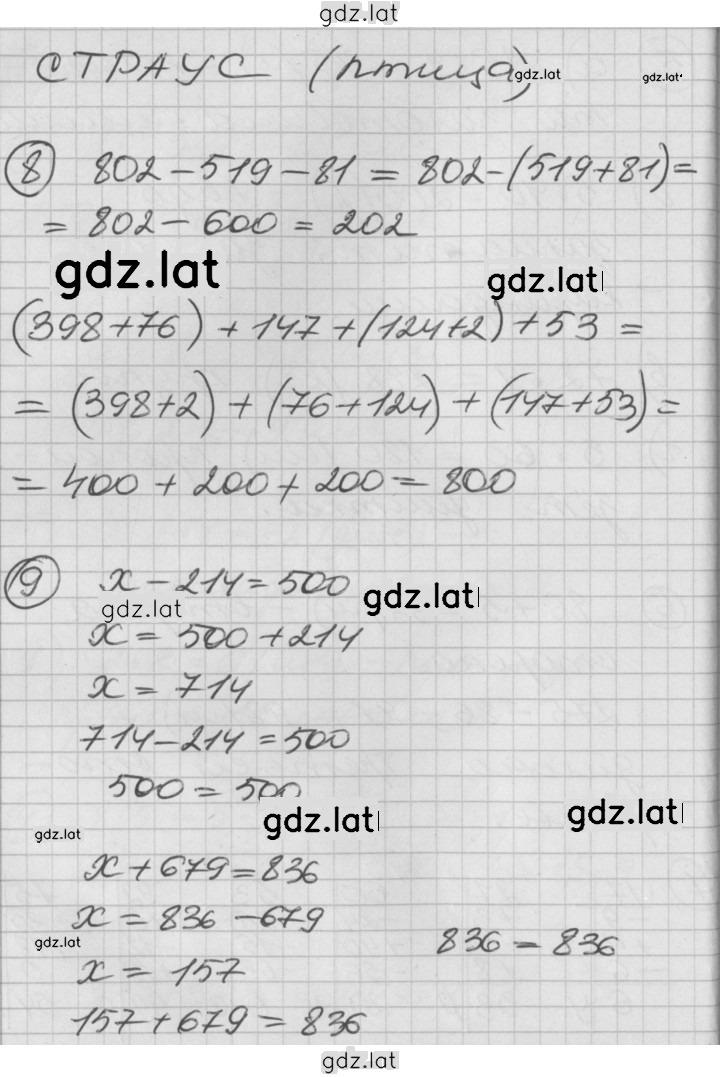 gdz.lat
СТРАУС (птица) gdz.lat gdz.lat
8 802 - 519 - 81 = 802 - (519 + 81) =
= 802 - 600 = 202
gdz.lat gdz.lat
(398 + 76) + 147 + (124 + 2) + 53 =
= (398 + 2) + (76 + 124) + (147 + 53) =
= 400 + 200 + 200 = 800
9 x - 214 = 500
gdz.lat gdz.lat
x = 500 + 214
x = 714
714 - 214 = 500
500 = 500
gdz.lat gdz.lat gdz.lat
x + 679 = 836
x = 836 - 679
gdz.lat 836 = 836
x = 157
157 + 679 = 836
gdz.lat